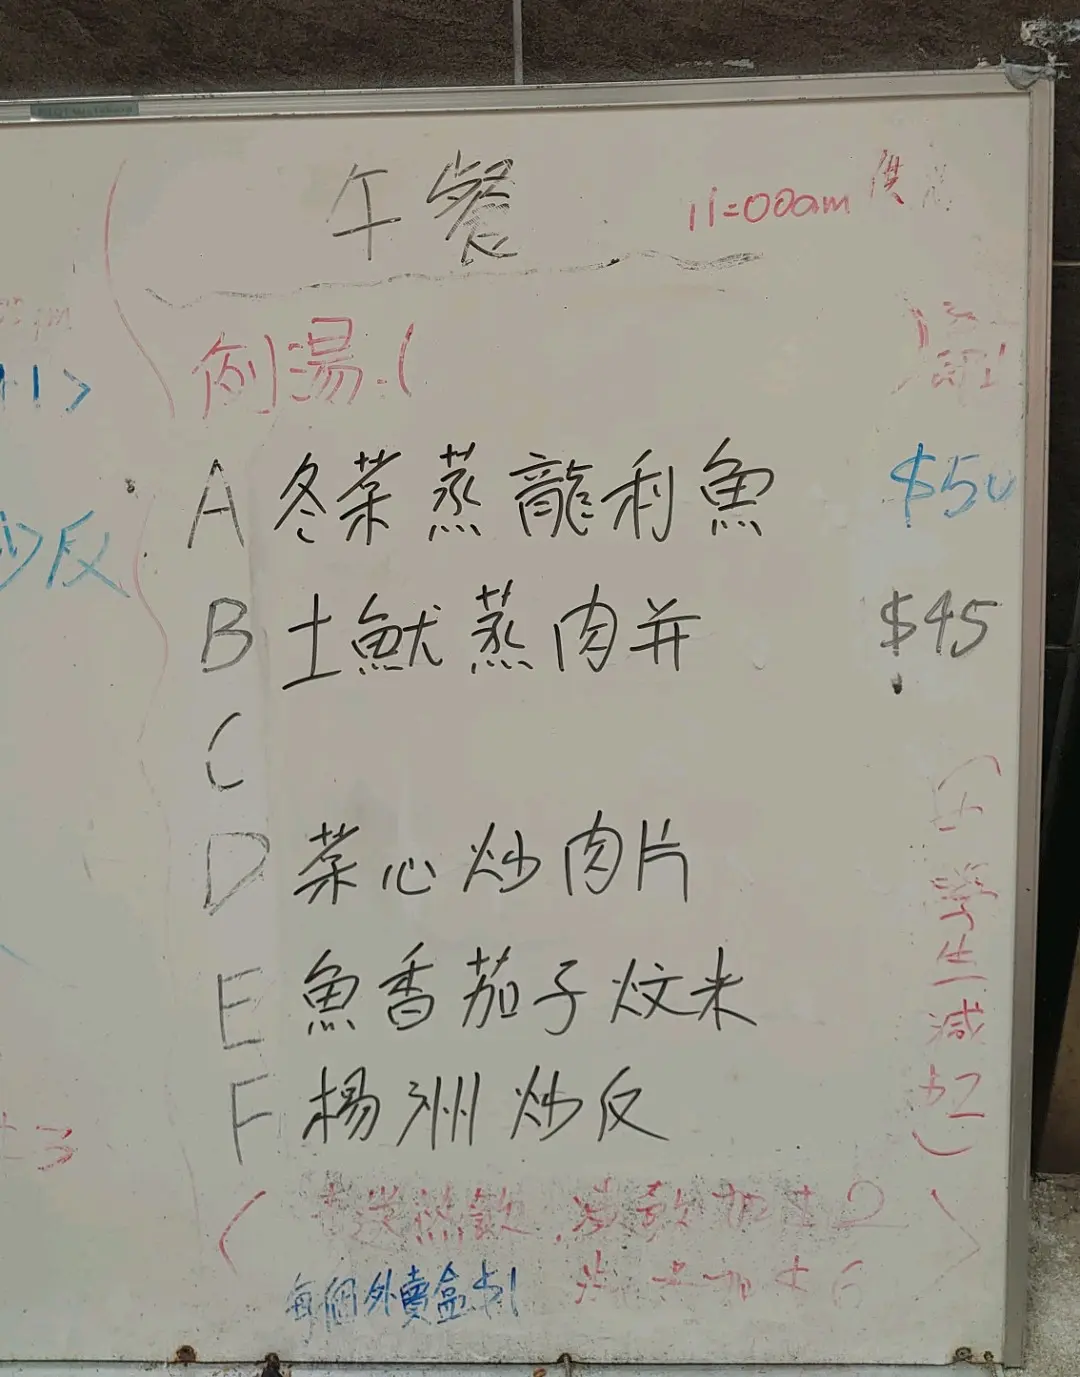 午餐 11:00am 供
例湯:( )
A 冬菜蒸龍利魚 $50
B 土魷蒸肉并 $45
C
D 菜心炒肉片
E 魚香茄子炆米
F 楊洲炒反
(学生減$2)
送熱飲 凍飲加$2
加$6
每個外賣盒$1
炒反